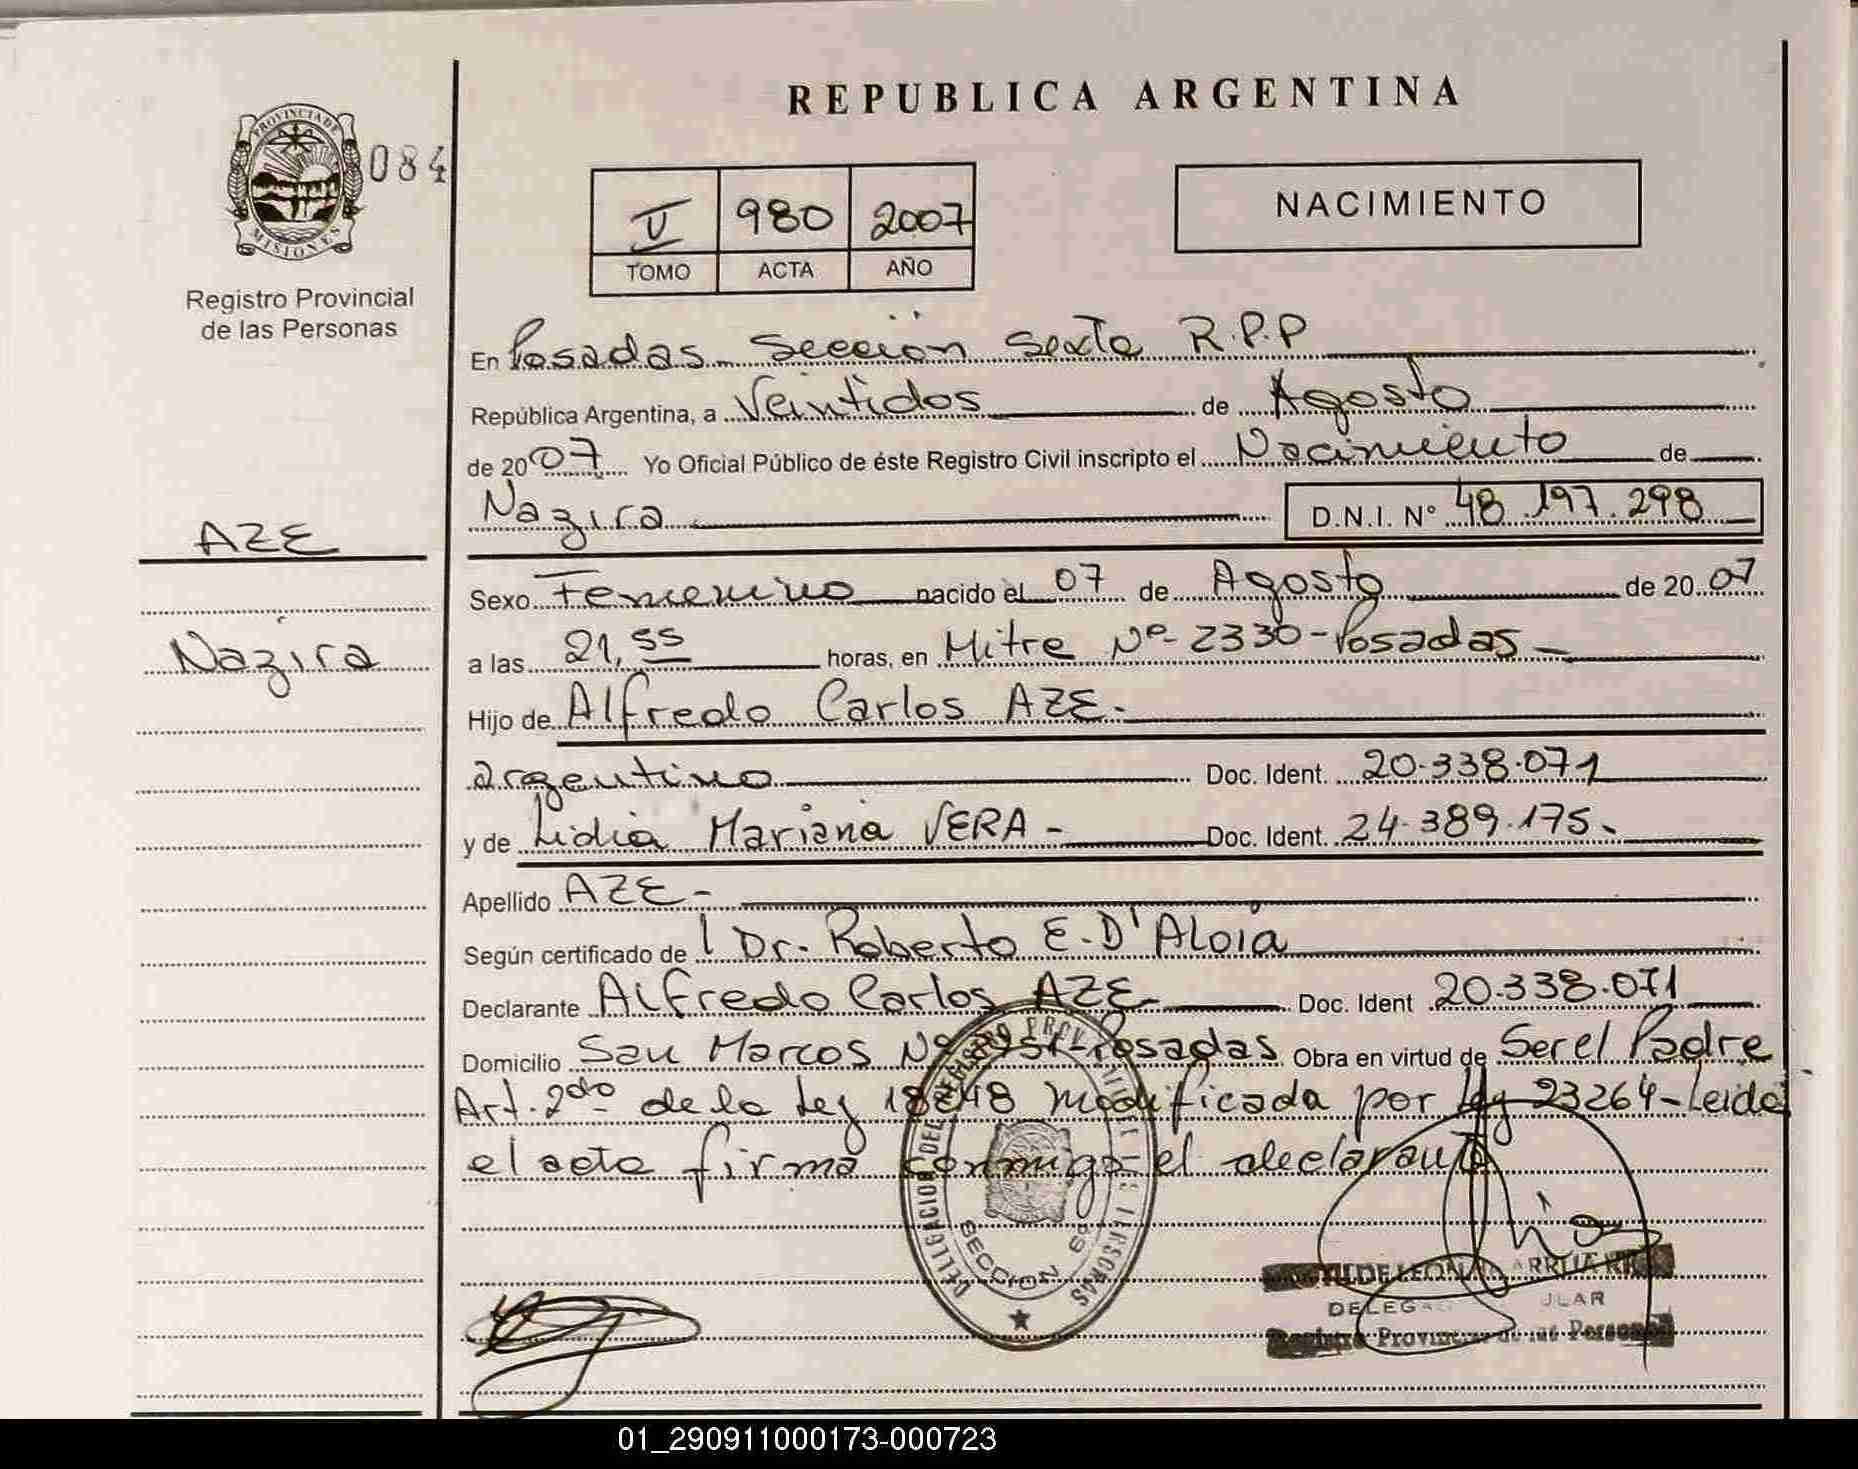 REPUBLICA ARGENTINA
PROVINCIA DE MISIONES
084
V 980 2007
TOMO ACTA AÑO
NACIMIENTO
Registro Provincial
de las Personas
En Posadas Sección Sexta R.P.P
República Argentina, a Veintidos de Agosto
de 2007 Yo Oficial Público de éste Registro Civil inscripto el Nacimiento de
Nazira D.N.I. N° 48.197.298
AZE
Nazira
Sexo Femenino nacido el 07 de Agosto de 2007
a las 21,55 horas, en Mitre Nº 2330-Posadas-
Hijo de Alfredo Carlos AZE-
argentino Doc. Ident. 20.338.071
y de Lidia Mariana VERA - Doc. Ident. 24.389.175-
Apellido AZE-
Según certificado de l Dr. Roberto E. D'Aloia
Declarante Alfredo Carlos AZE Doc. Ident 20.338.071
Domicilio San Marcos Nº Posadas Obra en virtud de Ser el Padre
Art. 2do de la Ley 18248 modificada por Ley 23264-Leida
el acta firma conmigo el declarante
DELEGACION DEL REGISTRO PROVINCIAL DE LAS PERSONAS
SECCION 6ª
Registro Provincial de las Personas
01_290911000173-000723